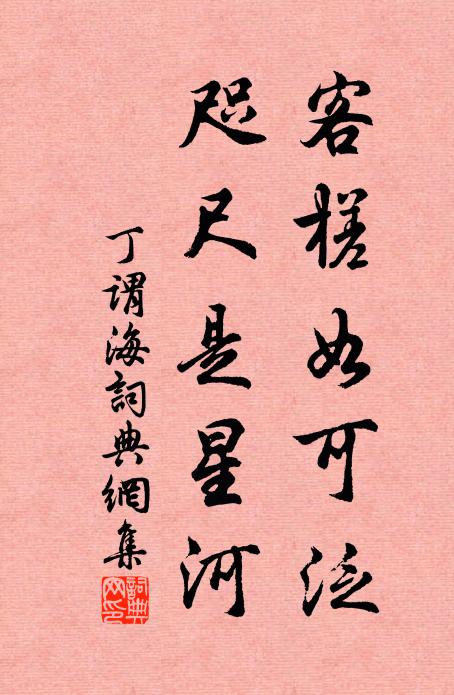 客槎如可泛
咫尺是星河
丁謂海詞典網集
詞典网印